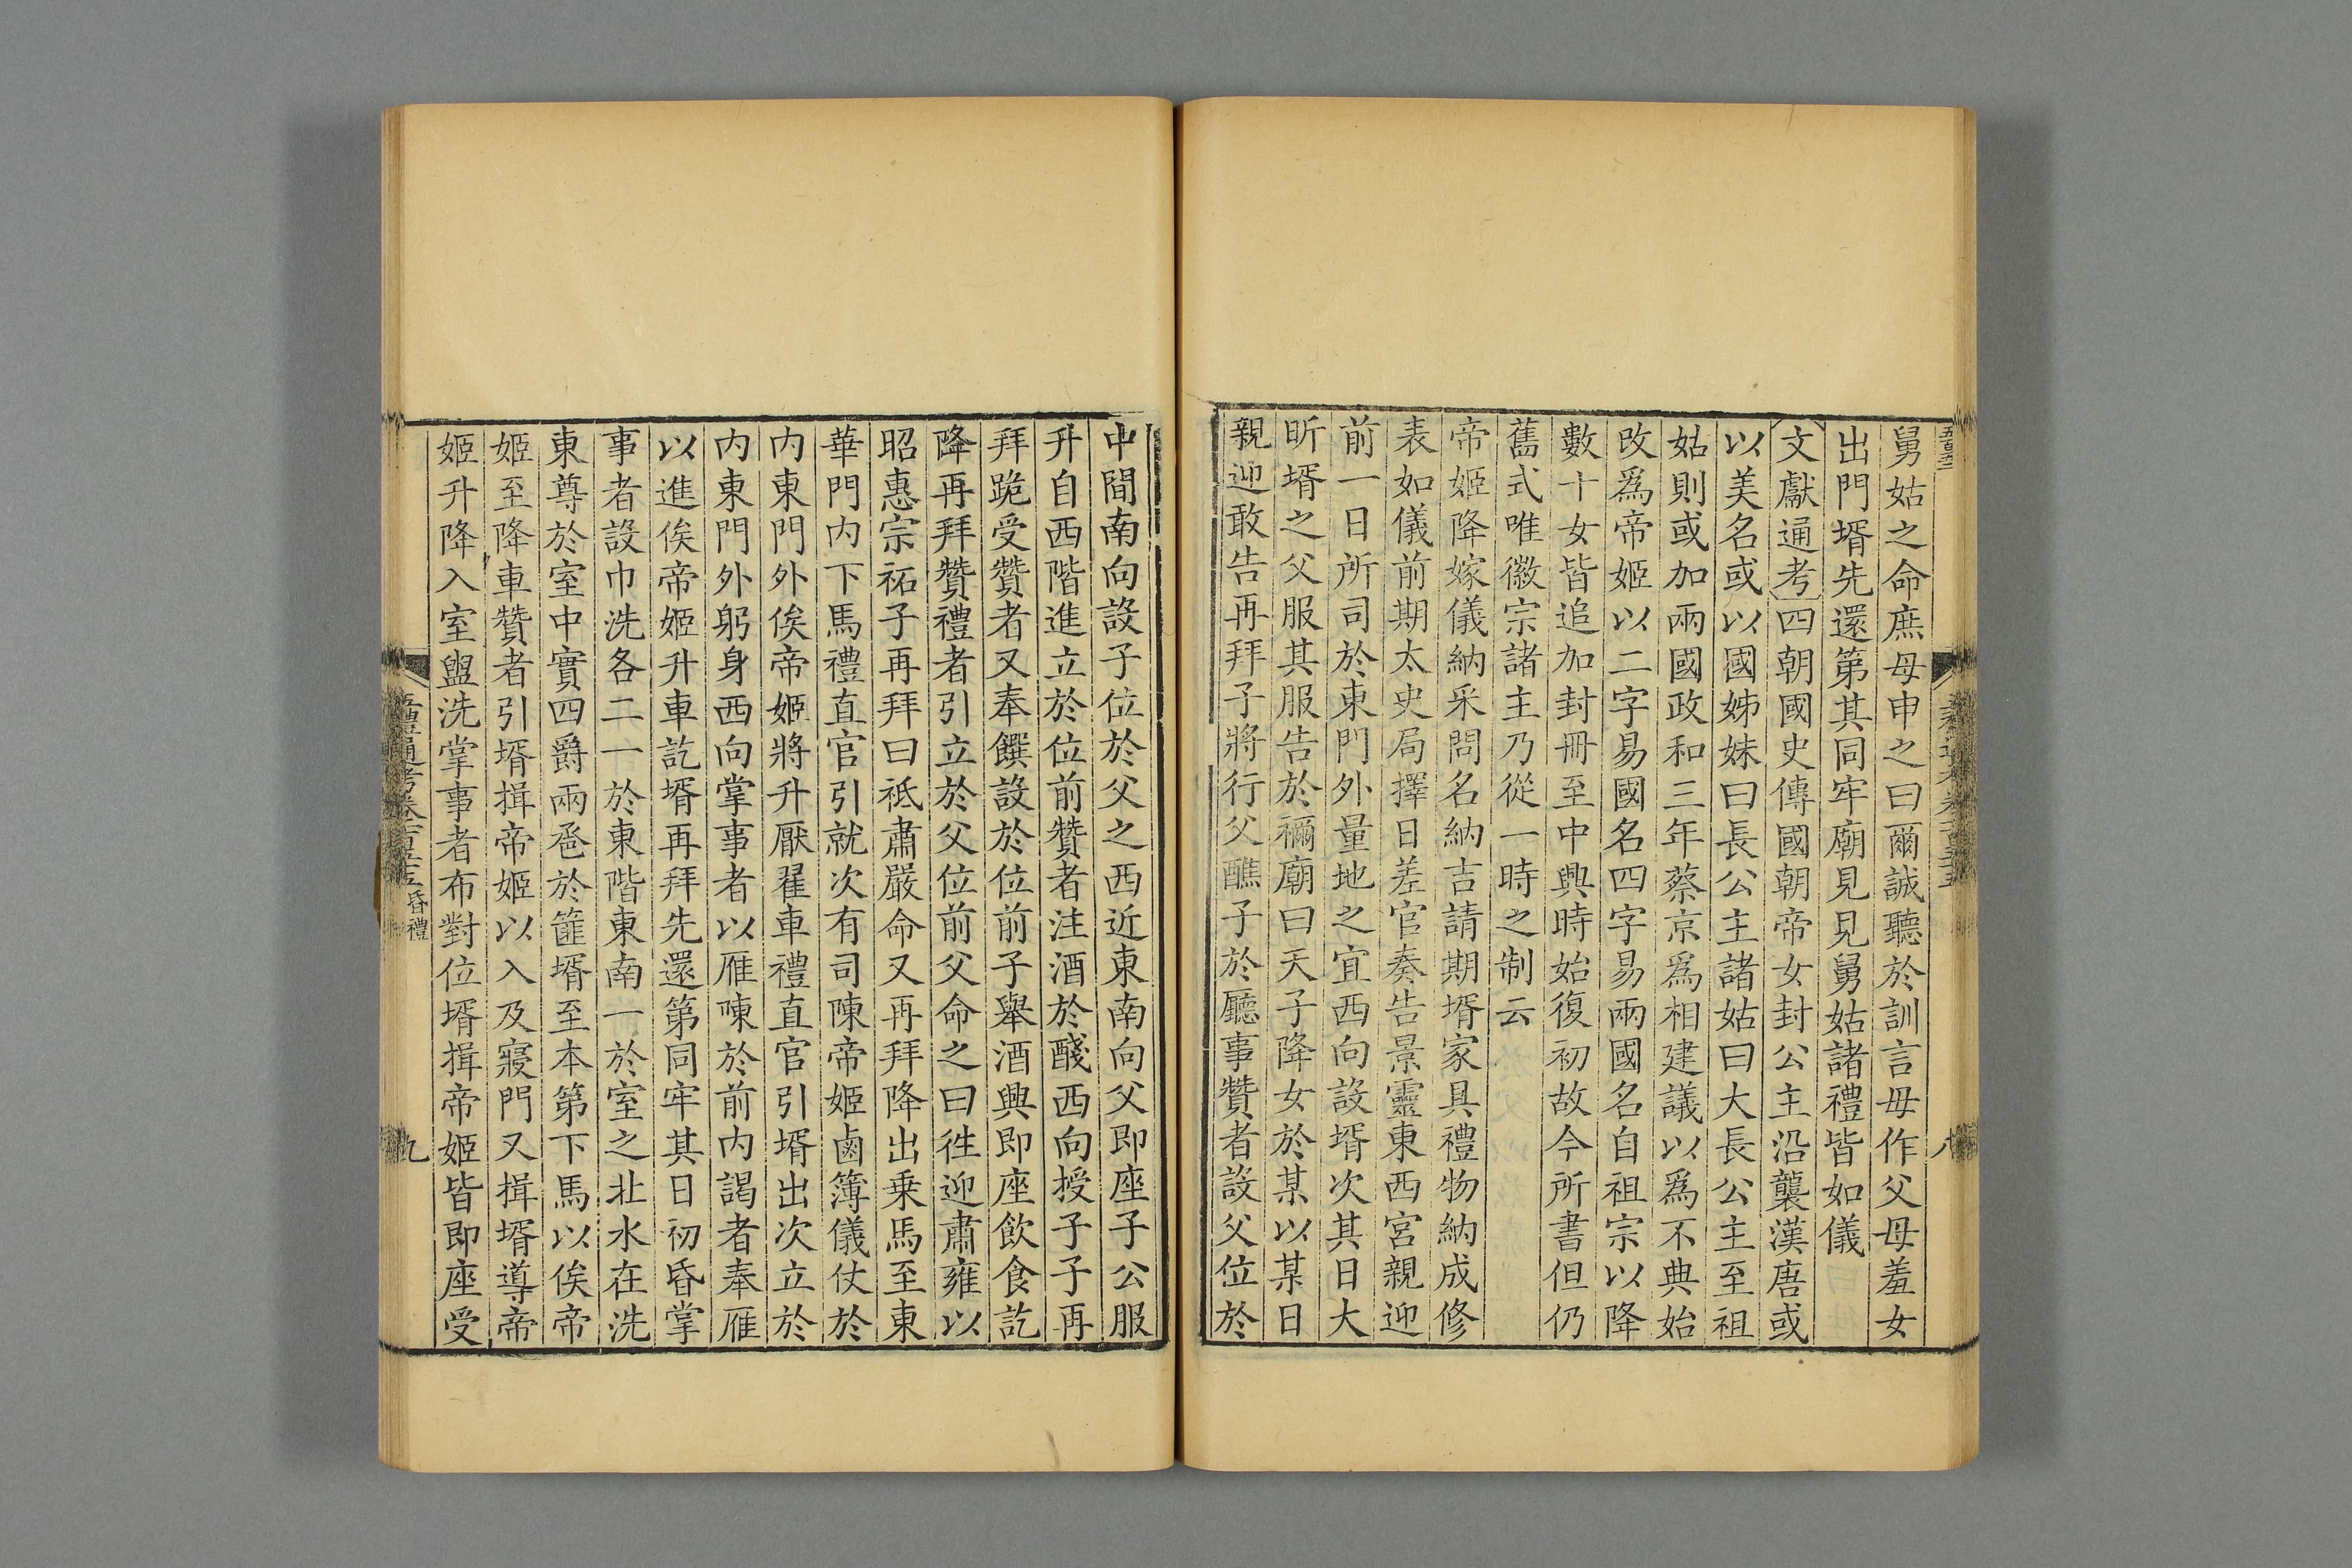 舅姑之命庶母申之曰爾誠聽於訓言毋作父母羞女
出門壻先還第其同牢廟見見舅姑諸禮皆如儀
文獻通考四朝國史傳國朝帝女封公主沿襲漢唐或
以美名或以國姊妹曰長公主諸姑曰大長公主至祖
姑則或加兩國政和三年蔡京爲相建議以爲不典始
改爲帝姬以二字易國名四字易兩國名自祖宗以降
數十女皆追加封冊至中興時始復初故今所書但仍
舊式唯徽宗諸主乃從一時之制云
帝姬降嫁儀納采問名納吉請期壻家具禮物納成修
表如儀前期太史局擇日差官奏告景靈東西宮親迎
前一日所司於東門外量地之宜西向設壻次其日大
昕壻之父服其服告於禰廟曰天子降女於某以某日
親迎敢告再拜子將行父醮子於廳事贊者設父位於
中間南向設子位於父之西近東南向父即座子公服
升自西階進立於位前贊者注酒於醆西向授子子再
拜跪受贊者又奉饌設於位前子舉酒興即座飲食訖
降再拜贊禮者引立於父位前父命之曰徃迎肅雍以
昭惠宗祏子再拜曰祗肅嚴命又再拜降出乗馬至東
華門内下馬禮直官引就次有司陳帝姬鹵簿儀仗於
内東門外俟帝姬將升厭翟車禮直官引壻出次立於
内東門外躬身西向掌事者以雁陳於前内謁者奉雁
以進俟帝姬升車訖壻再拜先還第同牢其日初昏掌
事者設巾洗各二一於東階東南一於室之北水在洗
東尊於室中實四爵兩卺於篚壻至本第下馬以俟帝
姬至降車贊者引壻揖帝姬以入及寢門又揖壻導帝
姬升降入室盥洗掌事者布對位壻揖帝姬皆即座受
五禮通考卷一百五十五 昏禮
九